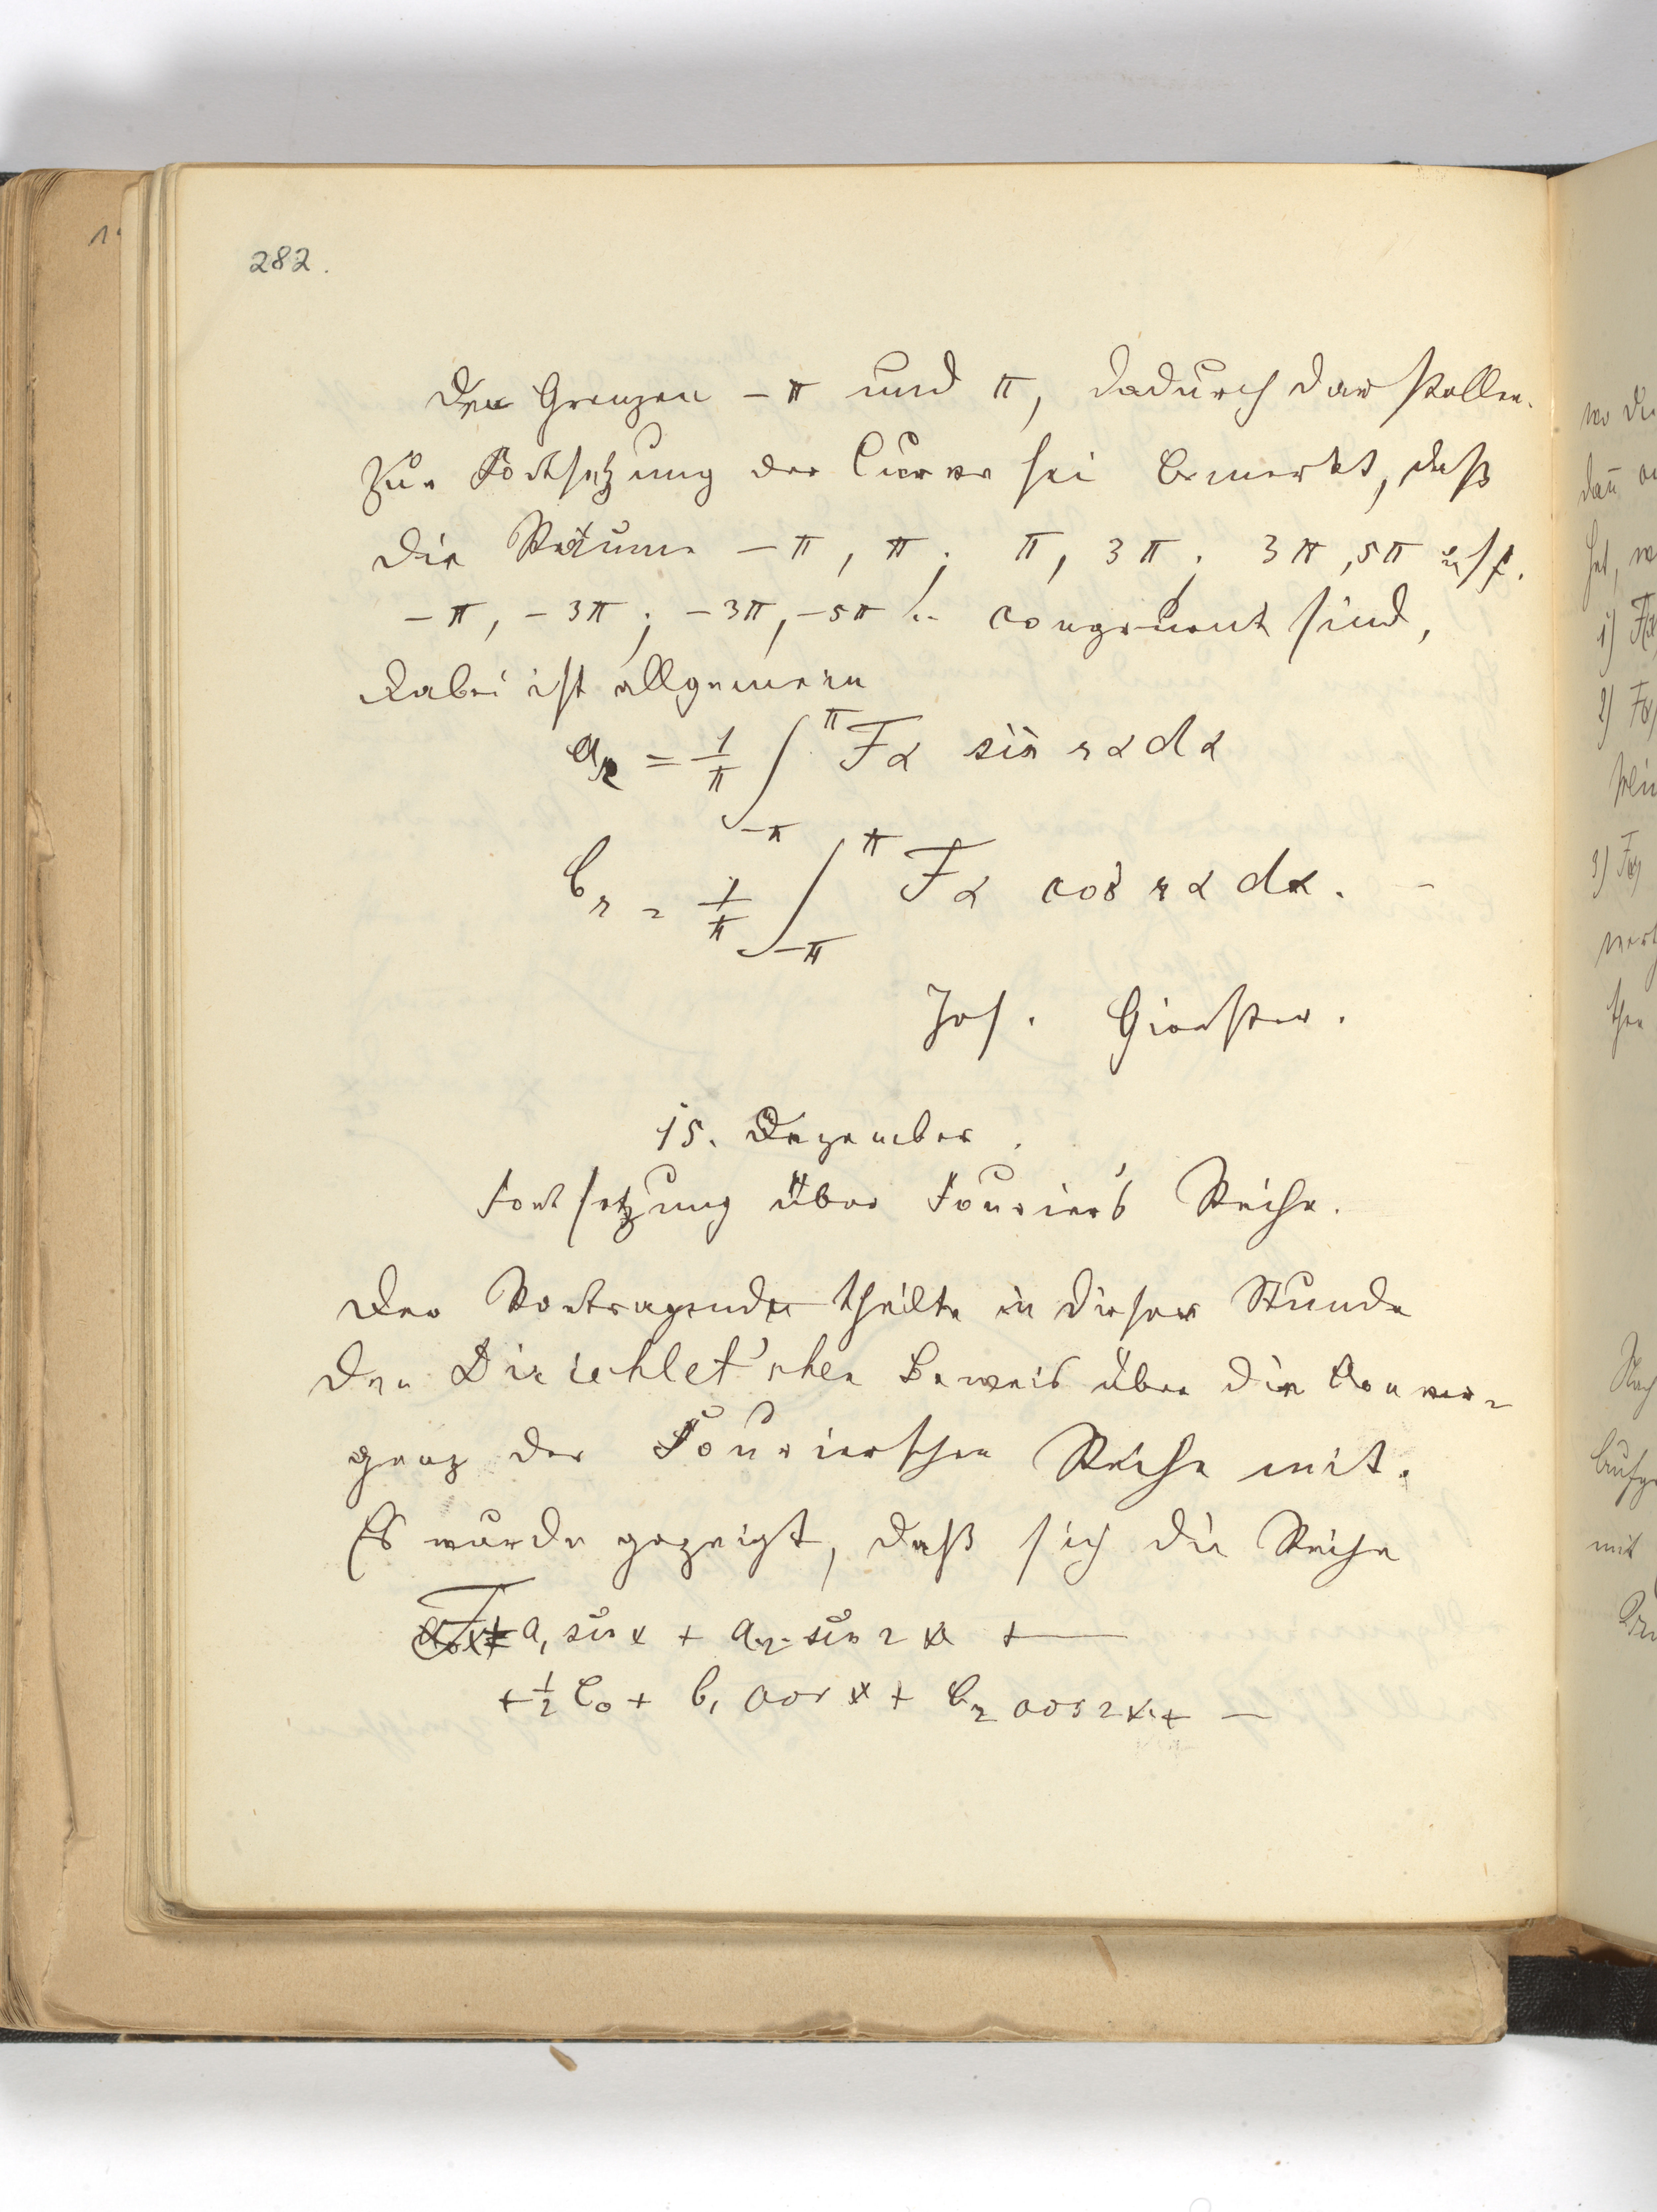 282.
den Grenzen – π und π, dadurch darstellen.
Zur Fortsetzung der Curve sei bemerkt, daß
die Räume – π, π; π, 3π; 3π, 5π usf.
– π, – 3π; – 3π, – 5π .. congruent sind,
dabei ist allgemein
a_r = 1/π ∫_{–π}^{π} Fα sin rα dα
b_r = 1/π ∫_{–π}^{π} Fα cos rα dα. –
Jos. Gierster.
15. Dezember.
Fortsetzung über Fourier's Reihe.
Der Vortragende theilte in dieser Stunde
den Dirichlet'schen Beweis über die Conver-
genz der Fourierschen Reihe mit.
Es wurde gezeigt, daß sich die Reihe
a₁ sin x + a₂ sin 2x + —
+ ½ b₀ + b₁ cos x + b₂ cos 2x + —